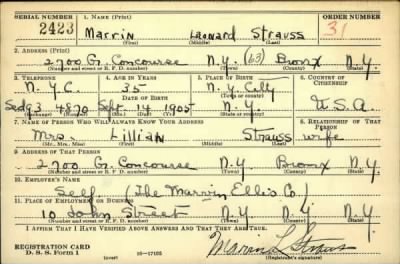 SERIAL NUMBER 1. NAME (Print) ORDER NUMBER
2423 Marvin Leonard Strauss 31
(First) (Middle) (Last)
2. ADDRESS (Print)
2700 Gr. Concourse N.Y. (63) Bronx N.Y.
(Number and street or R. F. D. number) (Town) (County) (State)
3. TELEPHONE 4. AGE IN YEARS 5. PLACE OF BIRTH 6. COUNTRY OF CITIZENSHIP
N.Y.C. 35 N.Y. City
DATE OF BIRTH (Town or county)
Sedg 3 4870 Sept. 14 1905 N.Y. U.S.A.
(Exchange) (Number) (Mo.) (Day) (Yr.) (State or country)
7. NAME OF PERSON WHO WILL ALWAYS KNOW YOUR ADDRESS 8. RELATIONSHIP OF THAT PERSON
Mrs. Lillian Strauss wife
(Mr., Mrs., Miss) (First) (Middle) (Last)
9. ADDRESS OF THAT PERSON
2700 Gr. Concourse N.Y. Bronx N.Y.
(Number and street or R. F. D. number) (Town) (County) (State)
10. EMPLOYER'S NAME
Self (The Marvin Ellis Co.)
11. PLACE OF EMPLOYMENT OR BUSINESS
10 John Street N.Y. N.Y. N.Y.
(Number and street or R. F. D. number) (Town) (County) (State)
I AFFIRM THAT I HAVE VERIFIED ABOVE ANSWERS AND THAT THEY ARE TRUE.
REGISTRATION CARD
D. S. S. Form 1 (over) 16—17105 Marvin L. Strauss
(Registrant's signature)